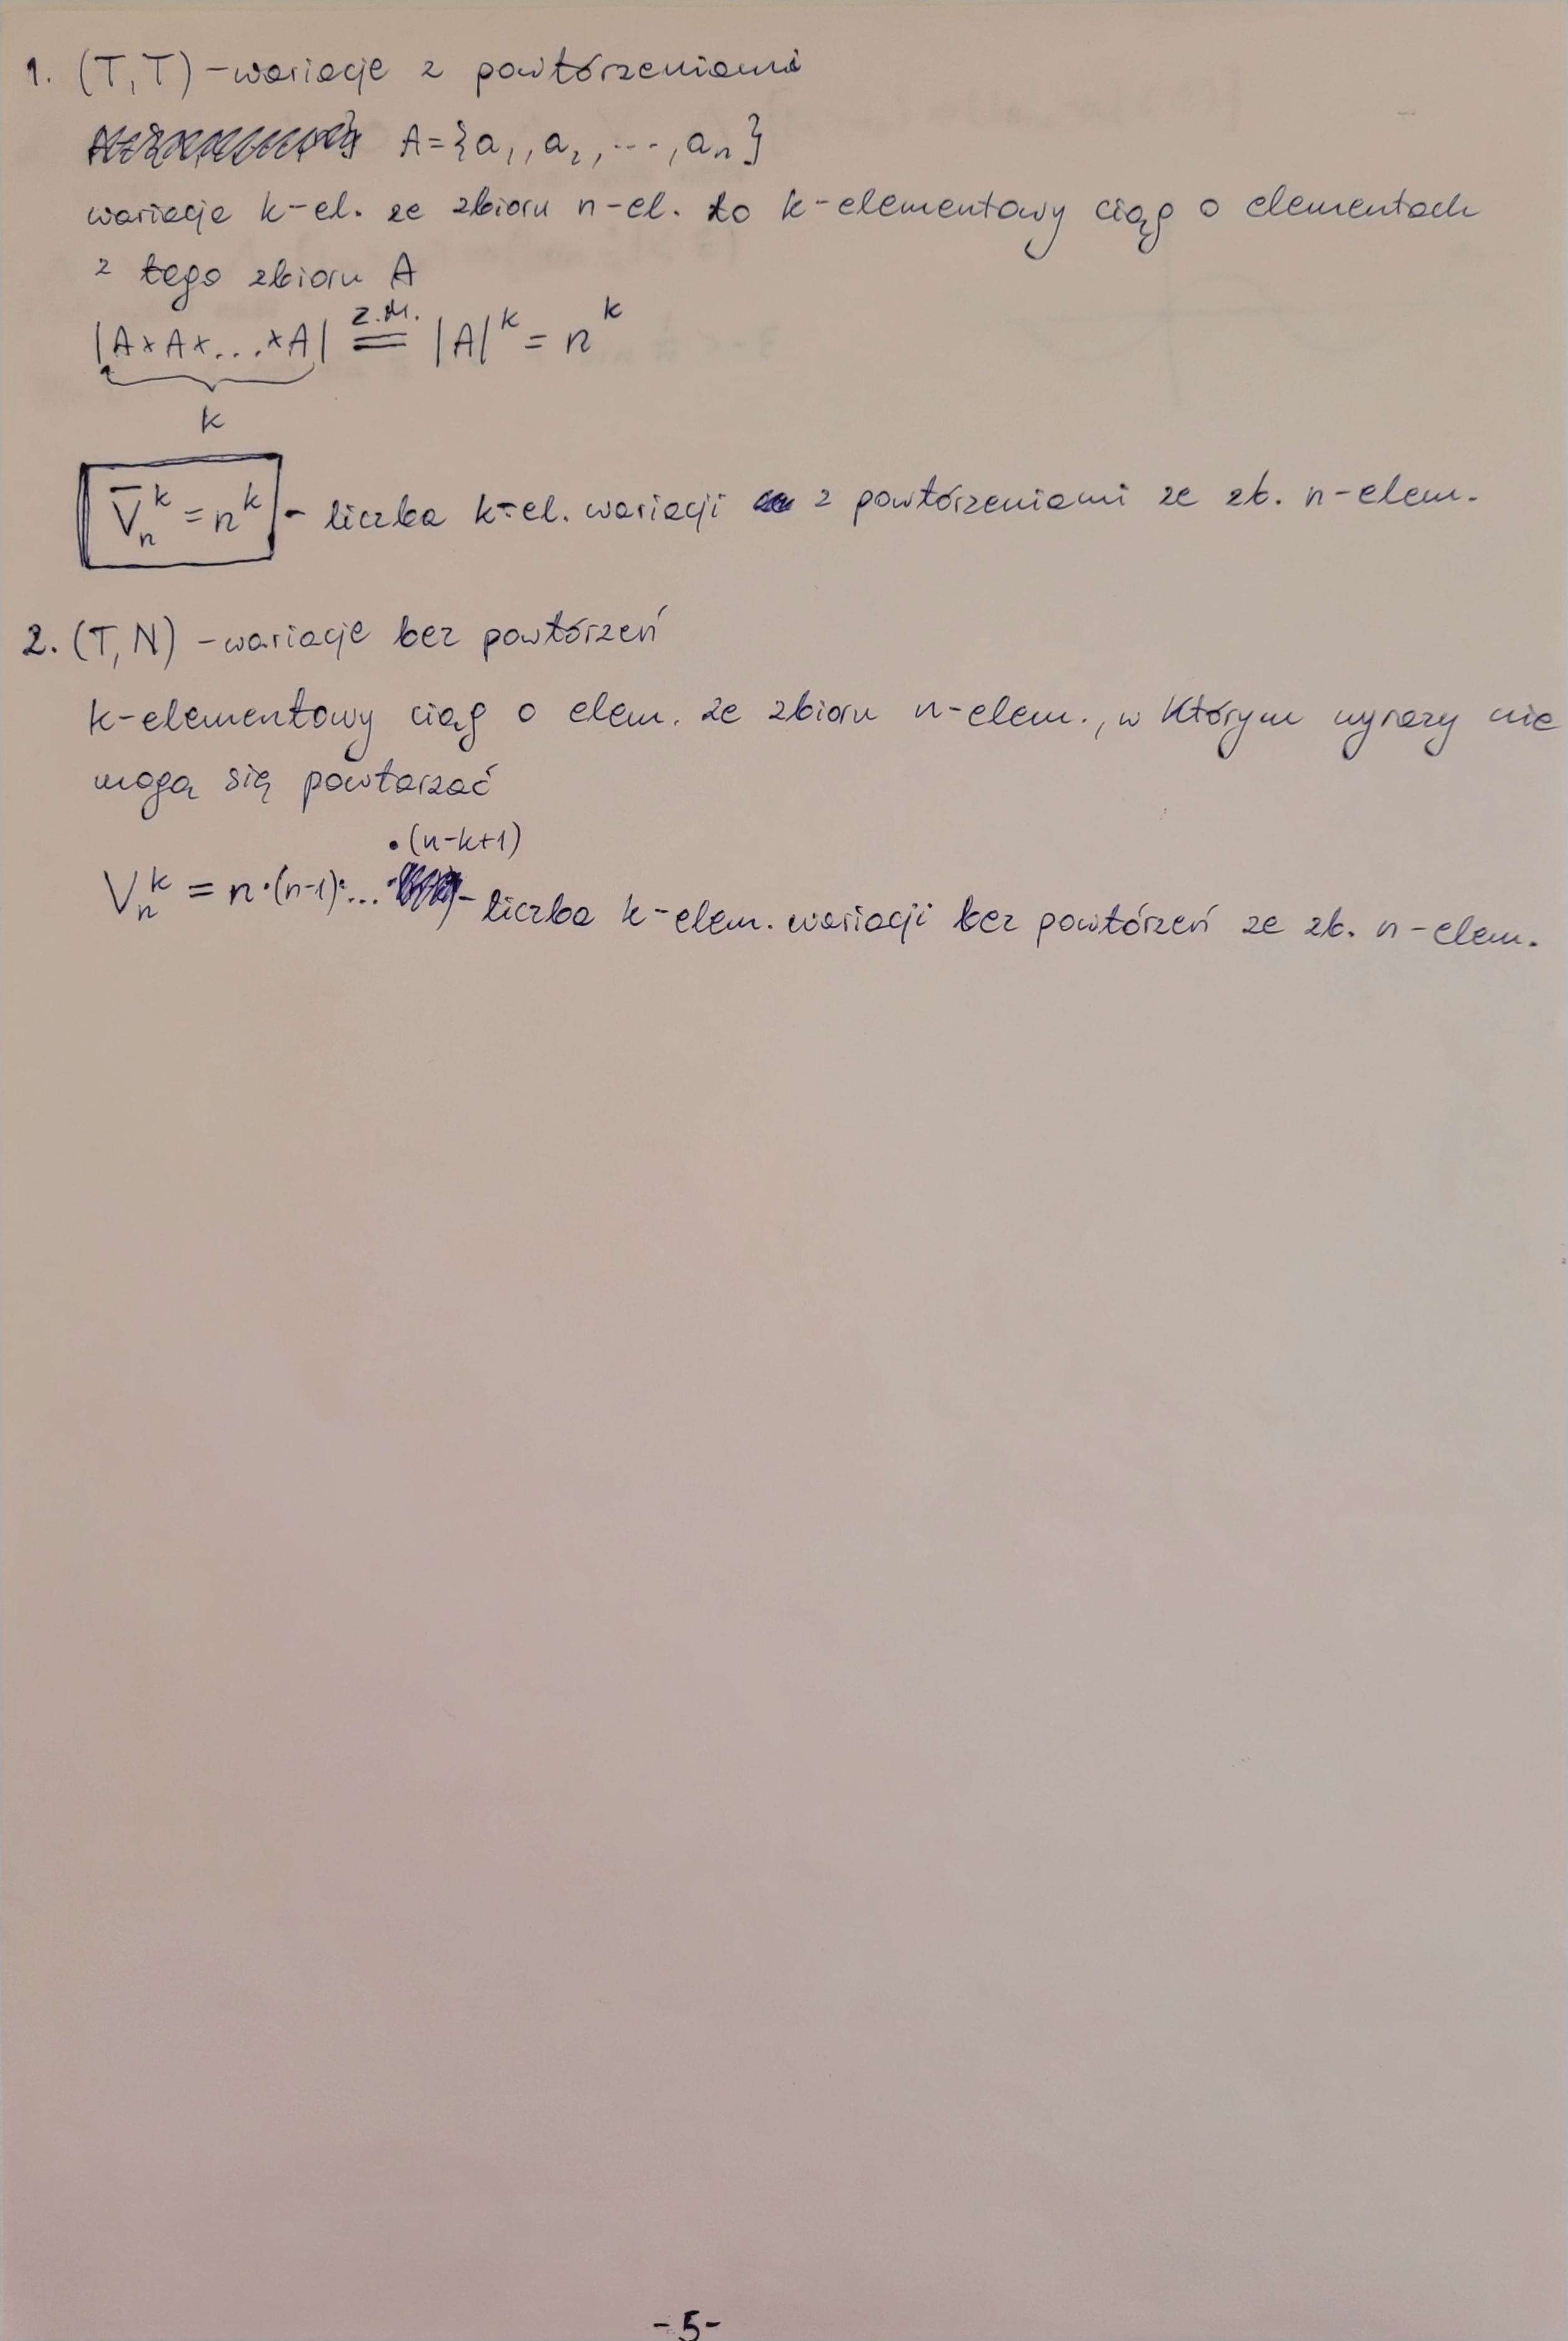 1. (T,T) - wariacje z powtórzeniami
A = {a₁, a₂, ..., aₙ}
wariacja k-el. ze zbioru n-el. to k-elementowy ciąg o elementach
z tego zbioru A
|A×A×...×A| =^{z.M.} |A|^k = n^k
k
V̅ₙ^k = n^k - liczba k-el. wariacji z powtórzeniami ze zb. n-elem.
2. (T,N) - wariacje bez powtórzeń
k-elementowy ciąg o elem. ze zbioru n-elem., w którym wyrazy nie
mogą się powtarzać
·(n-k+1)
Vₙ^k = n·(n-1)·... - liczba k-elem. wariacji bez powtórzeń ze zb. n-elem.
-5-